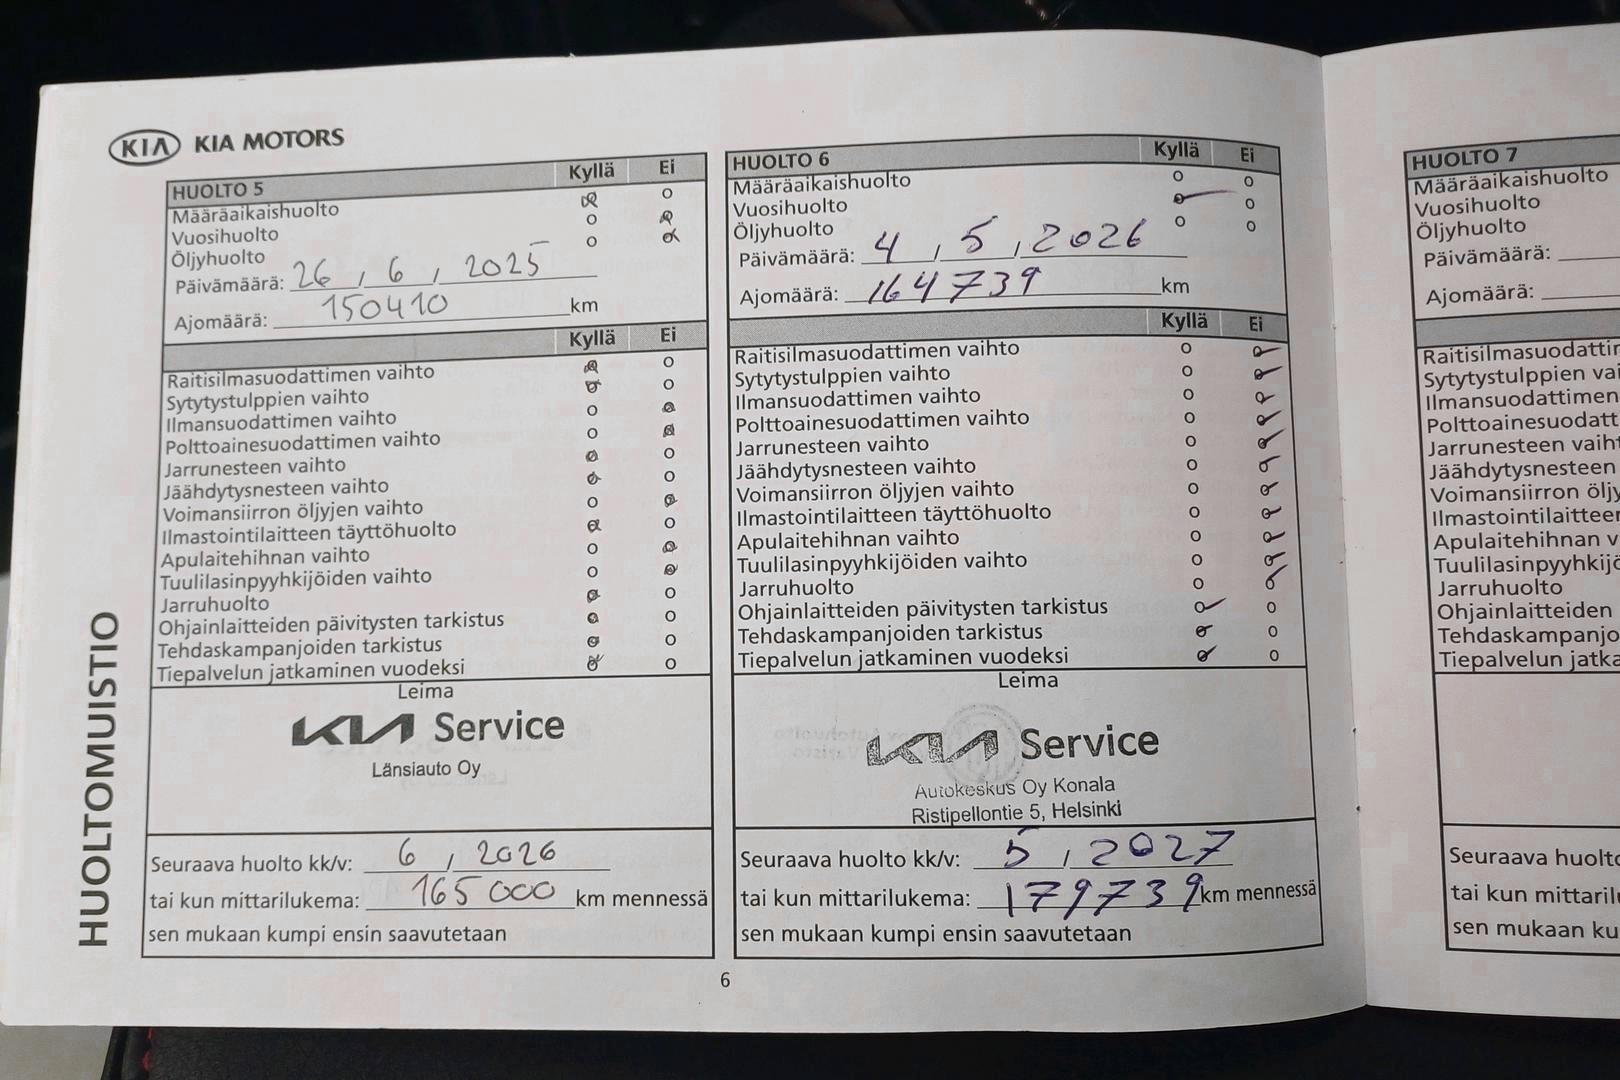 KIA KIA MOTORS
HUOLTO 5 Kyllä Ei
Määräaikaishuolto
Vuosihuolto
Öljyhuolto
Päivämäärä: 26 / 6 / 2025
Ajomäärä: 150410 km
Kyllä Ei
Raitisilmasuodattimen vaihto
Sytytystulppien vaihto
Ilmansuodattimen vaihto
Polttoainesuodattimen vaihto
Jarrunesteen vaihto
Jäähdytysnesteen vaihto
Voimansiirron öljyjen vaihto
Ilmastointilaitteen täyttöhuolto
Apulaitehihnan vaihto
Tuulilasinpyyhkijöiden vaihto
Jarruhuolto
Ohjainlaitteiden päivitysten tarkistus
Tehdaskampanjoiden tarkistus
Tiepalvelun jatkaminen vuodeksi
Leima
KIA Service
Länsiauto Oy
Seuraava huolto kk/v: 6 / 2026
tai kun mittarilukema: 165 000 km mennessä
sen mukaan kumpi ensin saavutetaan
HUOLTO 6 Kyllä Ei
Määräaikaishuolto
Vuosihuolto
Öljyhuolto
Päivämäärä: 4 / 5 / 2026
Ajomäärä: 164739 km
Kyllä Ei
Raitisilmasuodattimen vaihto
Sytytystulppien vaihto
Ilmansuodattimen vaihto
Polttoainesuodattimen vaihto
Jarrunesteen vaihto
Jäähdytysnesteen vaihto
Voimansiirron öljyjen vaihto
Ilmastointilaitteen täyttöhuolto
Apulaitehihnan vaihto
Tuulilasinpyyhkijöiden vaihto
Jarruhuolto
Ohjainlaitteiden päivitysten tarkistus
Tehdaskampanjoiden tarkistus
Tiepalvelun jatkaminen vuodeksi
Leima
KIA Service
Autokeskus Oy Konala
Ristipellontie 5, Helsinki
Seuraava huolto kk/v: 5 / 2027
tai kun mittarilukema: 179739 km mennessä
sen mukaan kumpi ensin saavutetaan
HUOLTOMUISTIO
6
HUOLTO 7
Määräaikaishuolto
Vuosihuolto
Öljyhuolto
Päivämäärä:
Ajomäärä:
Raitisilmasuodattim
Sytytystulppien vai
Ilmansuodattimen
Polttoainesuodatt
Jarrunesteen vaiht
Jäähdytysnesteen
Voimansiirron öljy
Ilmastointilaitteer
Apulaitehihnan v
Tuulilasinpyyhkijö
Jarruhuolto
Ohjainlaitteiden
Tehdaskampanjo
Tiepalvelun jatka
Seuraava huolto
tai kun mittaril
sen mukaan ku